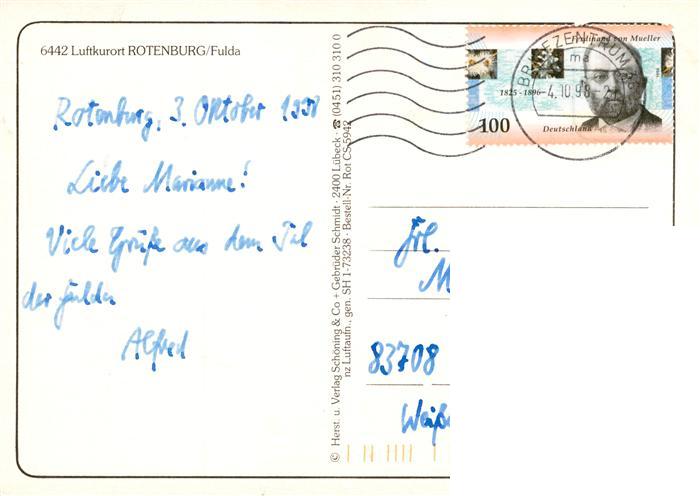 6442 Luftkurort ROTENBURG/Fulda
Rotenburg, 3. Oktober 1998
Liebe Marianne!
Viele Grüße aus dem Tal
der Fulda
Alfred
© Herst. u. Verlag Schöning & Co + Gebrüder Schmidt · 2400 Lübeck · ☎ (0451) 310 310 0
nz Luftaufn., gen. SH 1-73238 · Bestell-Nr. Rot CS 5942
Ferdinand von Mueller
1825 - 1896
100
Deutschland
BRIEFZENTRUM
ma
-4.10.98-
Frl.
M
83708
Weiße